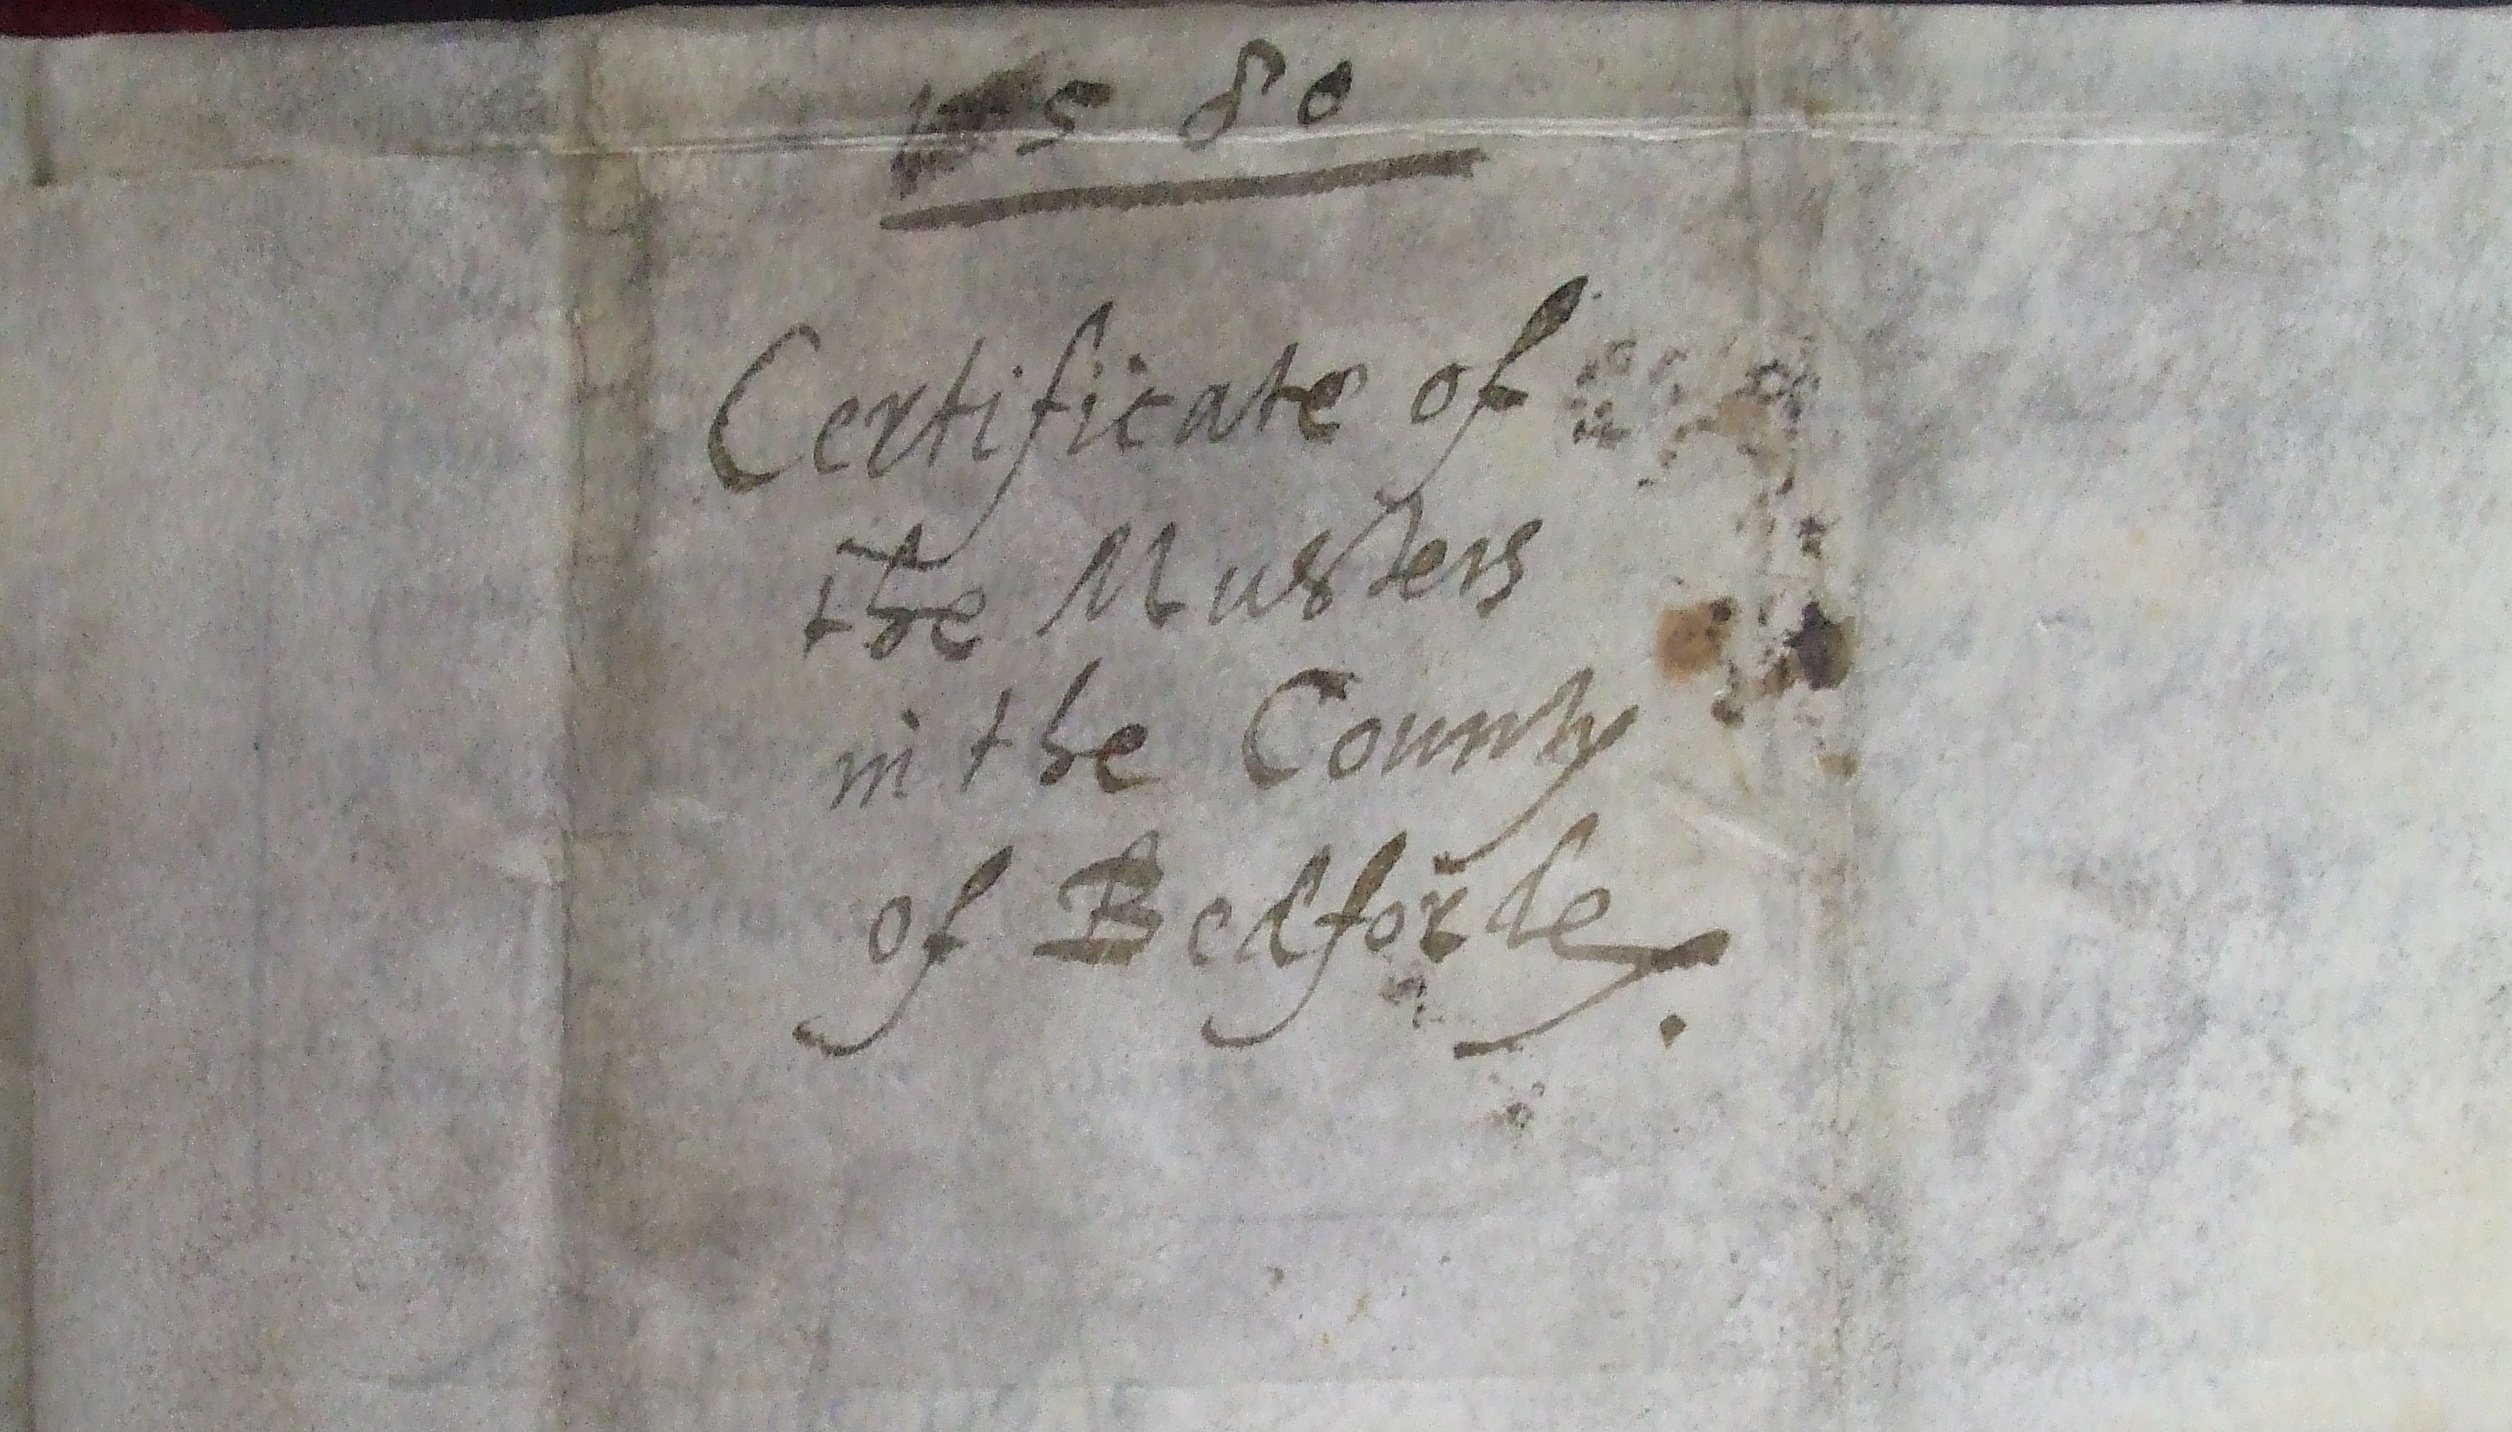 1580
Certificate of
the Musters
in the County
of Bedforde.